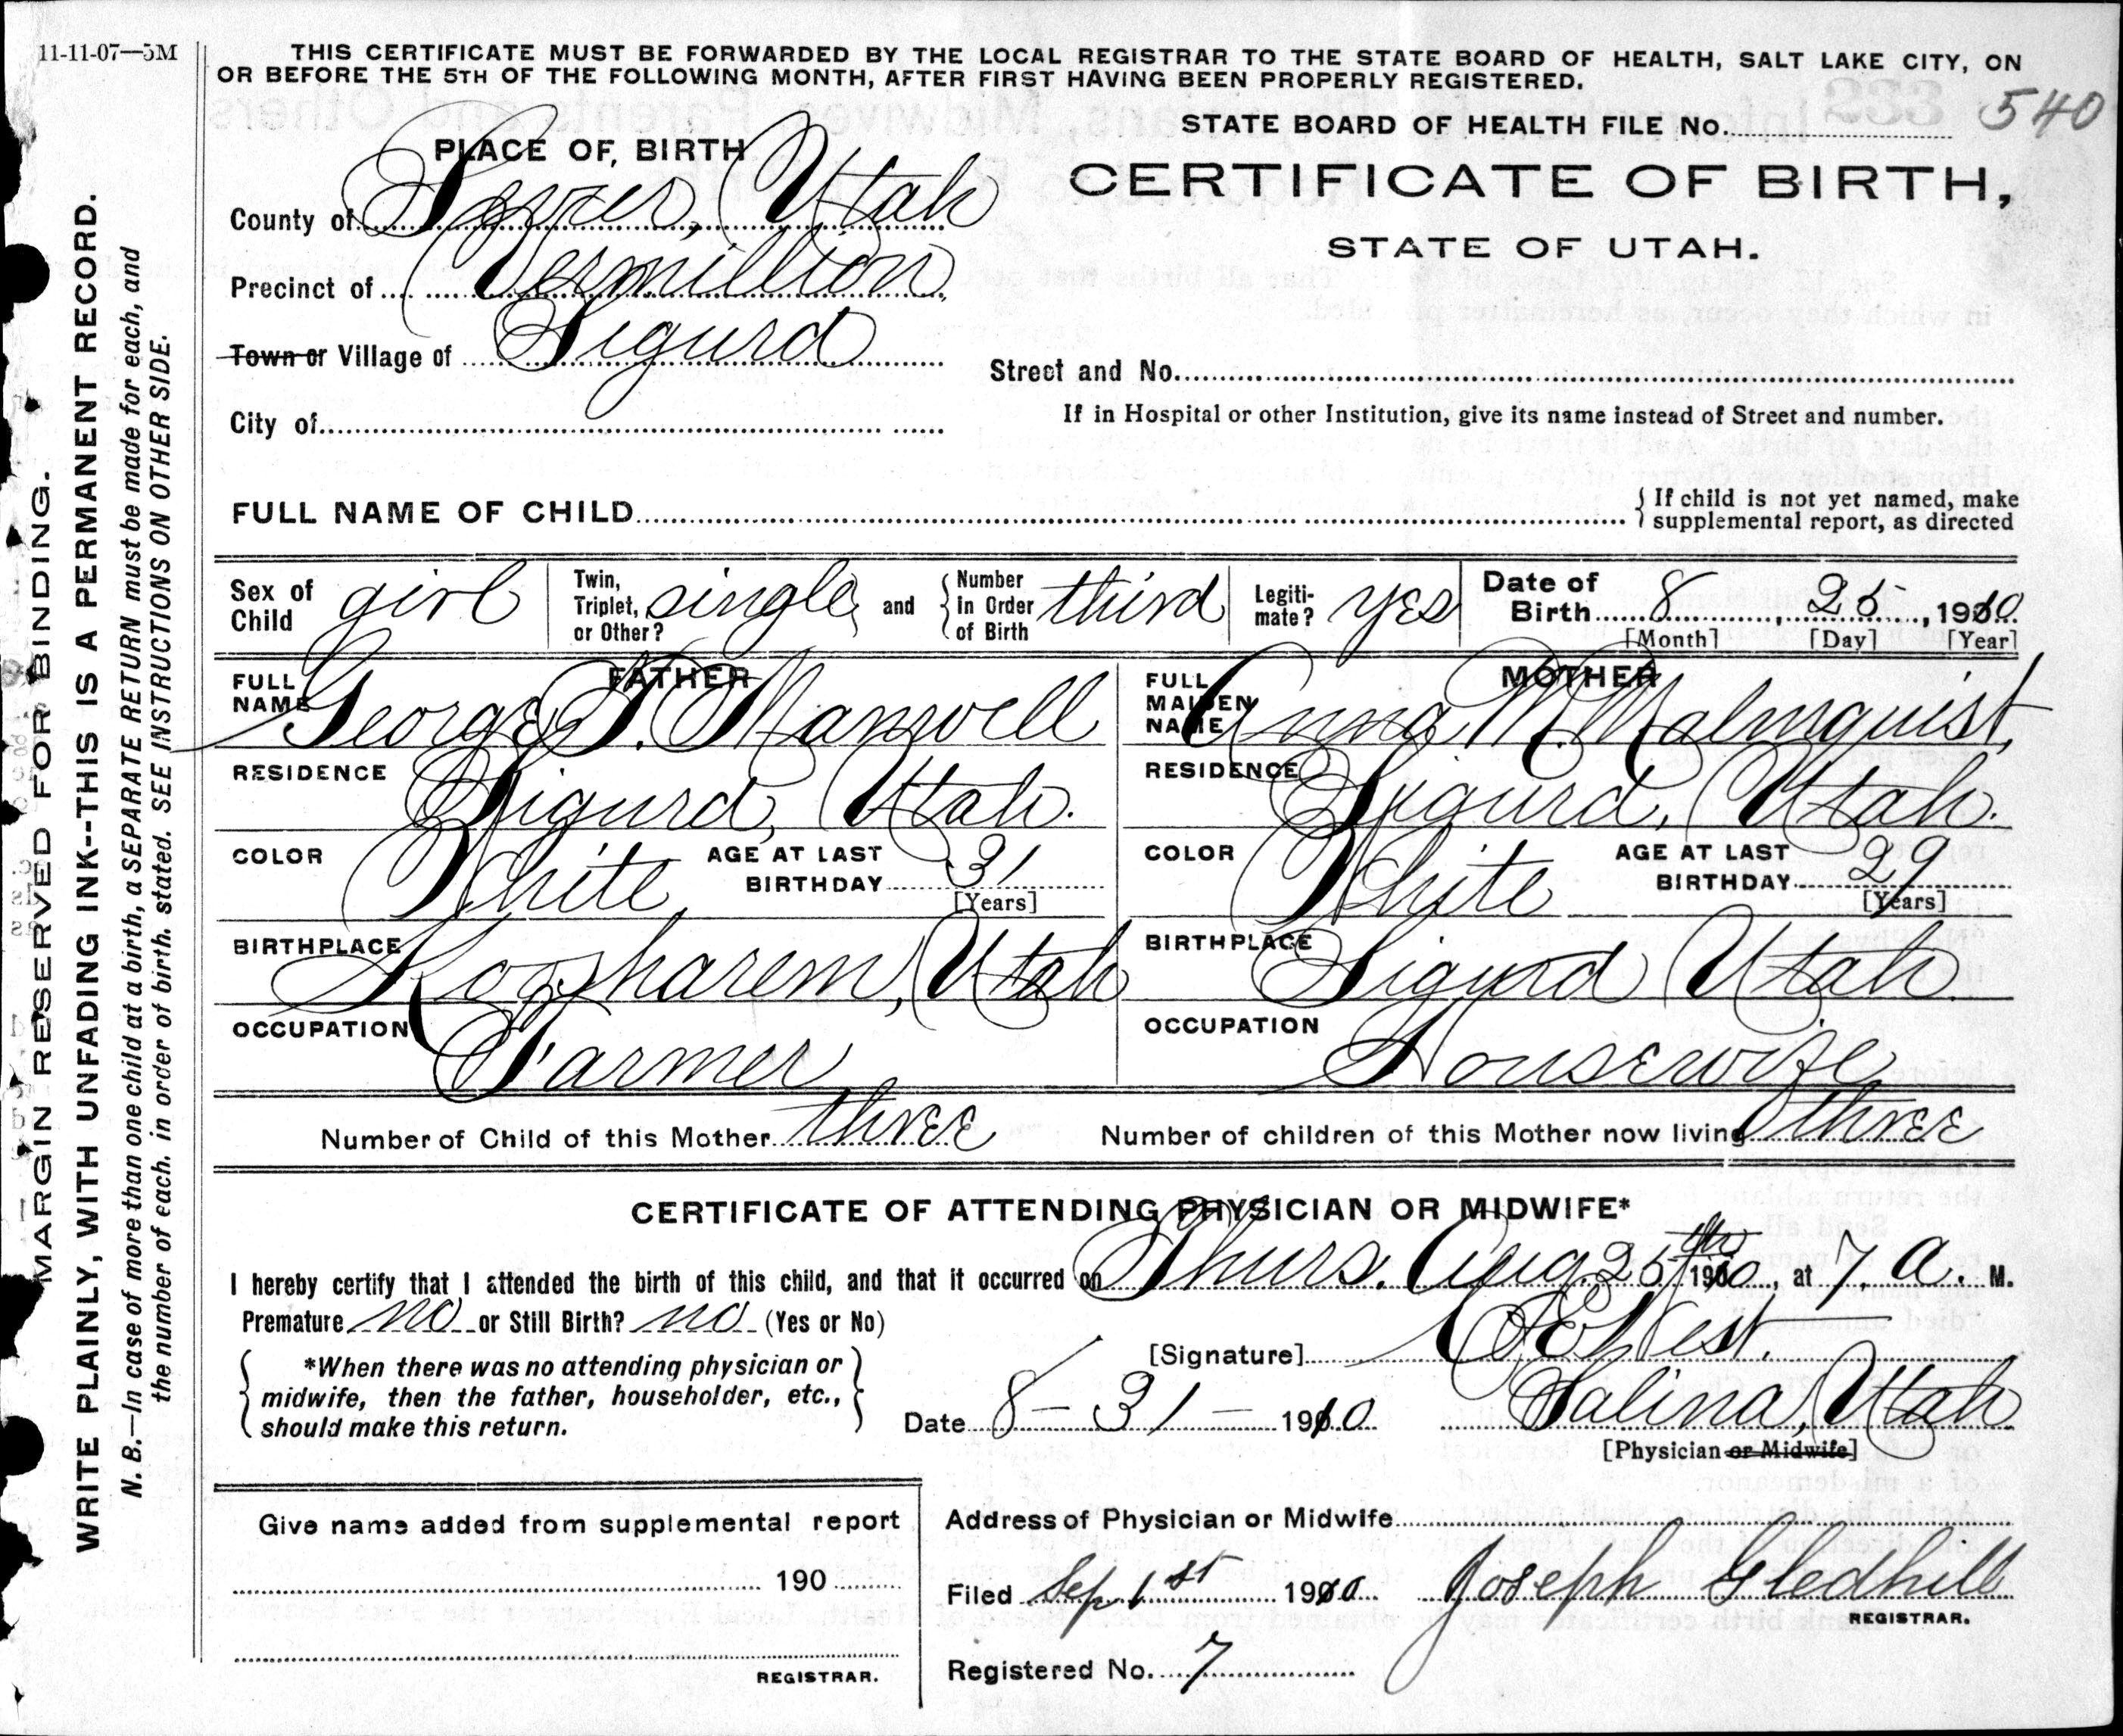 11-11-07—5M
THIS CERTIFICATE MUST BE FORWARDED BY THE LOCAL REGISTRAR TO THE STATE BOARD OF HEALTH, SALT LAKE CITY, ON
OR BEFORE THE 5TH OF THE FOLLOWING MONTH, AFTER FIRST HAVING BEEN PROPERLY REGISTERED.
STATE BOARD OF HEALTH FILE No. 540
PLACE OF BIRTH
CERTIFICATE OF BIRTH,
STATE OF UTAH.
County of Sevier, Utah
Precinct of Vermillion
Town or Village of Sigurd
Street and No.
If in Hospital or other Institution, give its name instead of Street and number.
City of
FULL NAME OF CHILD
{ If child is not yet named, make
supplemental report, as directed
Sex of Child girl
Twin, Triplet, or Other? single and { Number in Order of Birth third
Legiti-mate? yes
Date of Birth 8, 25, 1910
[Month] [Day] [Year]
FATHER
FULL NAME George T. Maxwell
RESIDENCE Sigurd, Utah.
COLOR White AGE AT LAST BIRTHDAY 31
[Years]
BIRTHPLACE Koosharem, Utah
OCCUPATION Farmer
MOTHER
FULL MAIDEN NAME Anna M. Malmquist,
RESIDENCE Sigurd, Utah.
COLOR White AGE AT LAST BIRTHDAY 29
[Years]
BIRTHPLACE Sigurd Utah
OCCUPATION Housewife
Number of Child of this Mother three Number of children of this Mother now living three
CERTIFICATE OF ATTENDING PHYSICIAN OR MIDWIFE*
I hereby certify that I attended the birth of this child, and that it occurred on Thurs. Aug. 25th 1910, at 7. a. M.
Premature no or Still Birth? no (Yes or No)
[Signature] West.
{ *When there was no attending physician or
midwife, then the father, householder, etc.,
should make this return. }
Date 8-31-1910 Salina, Utah
[Physician or Midwife]
Give name added from supplemental report
190
REGISTRAR.
Address of Physician or Midwife
Filed Sep 1st 1910 Joseph Gledhill
REGISTRAR.
Registered No. 7
MARGIN RESERVED FOR BINDING.
WRITE PLAINLY, WITH UNFADING INK--THIS IS A PERMANENT RECORD.
N. B.—In case of more than one child at a birth, a SEPARATE RETURN must be made for each, and
the number of each, in order of birth, stated. SEE INSTRUCTIONS ON OTHER SIDE.